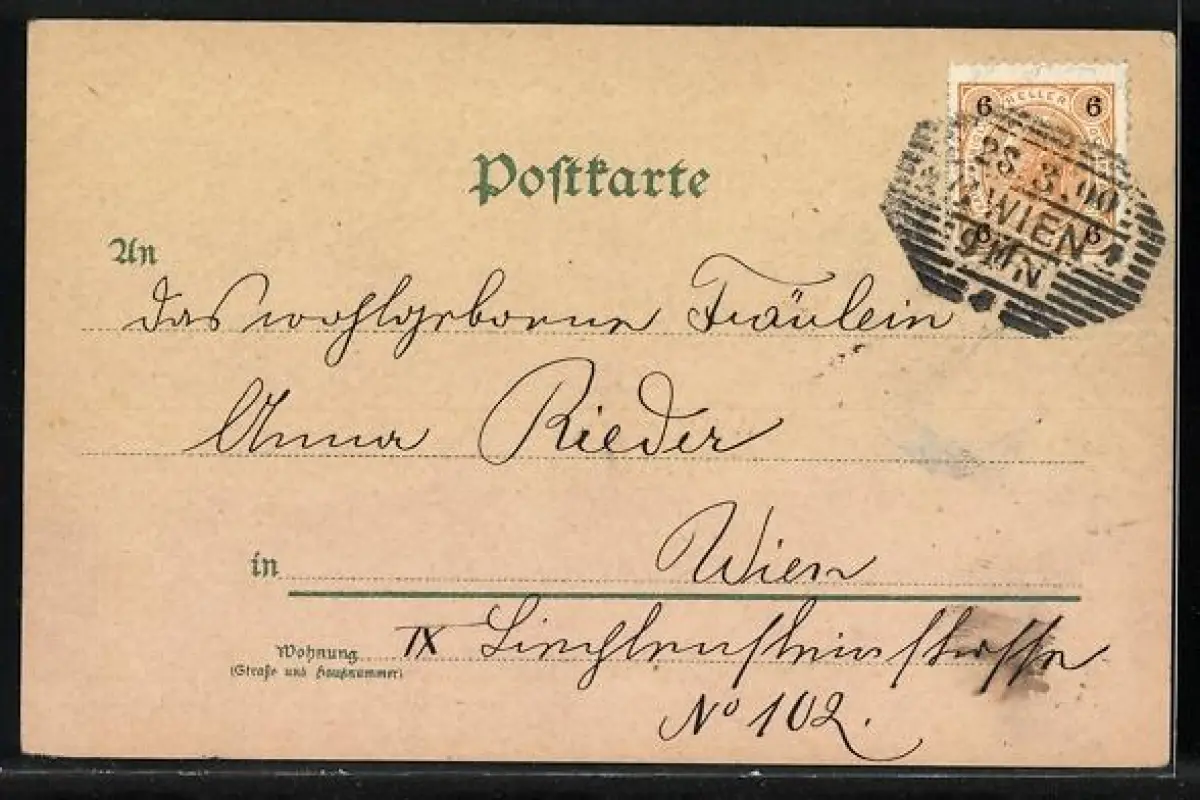 Postkarte
6 HELLER 6
28.3.00
WIEN
9 N
6 6
An
das wohlgeborene Fräulein
Anna Rieder
in Wien
Wohnung IX Liechtensteinstrasse
(Straße und Hausnummer)
No 102.